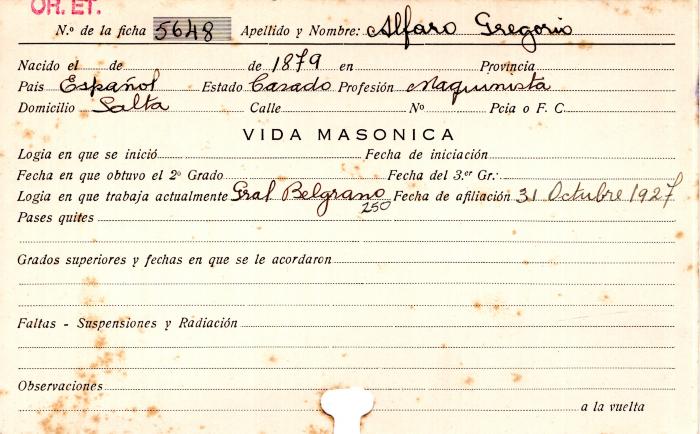 OR. ET.
N.º de la ficha 5648 Apellido y Nombre: Alfaro Gregorio
Nacido el de de 1879 en Provincia
Pais Español Estado Casado Profesión Maquinista
Domicilio Salta Calle Nº Pcia o F. C.
VIDA MASONICA
Logia en que se inició Fecha de iniciación
Fecha en que obtuvo el 2º Grado Fecha del 3.er Gr.·.
Logia en que trabaja actualmente Gral Belgrano 250 Fecha de afiliación 31 Octubre 1927
Pases quites
Grados superiores y fechas en que se le acordaron
Faltas - Suspensiones y Radiación
Observaciones
a la vuelta